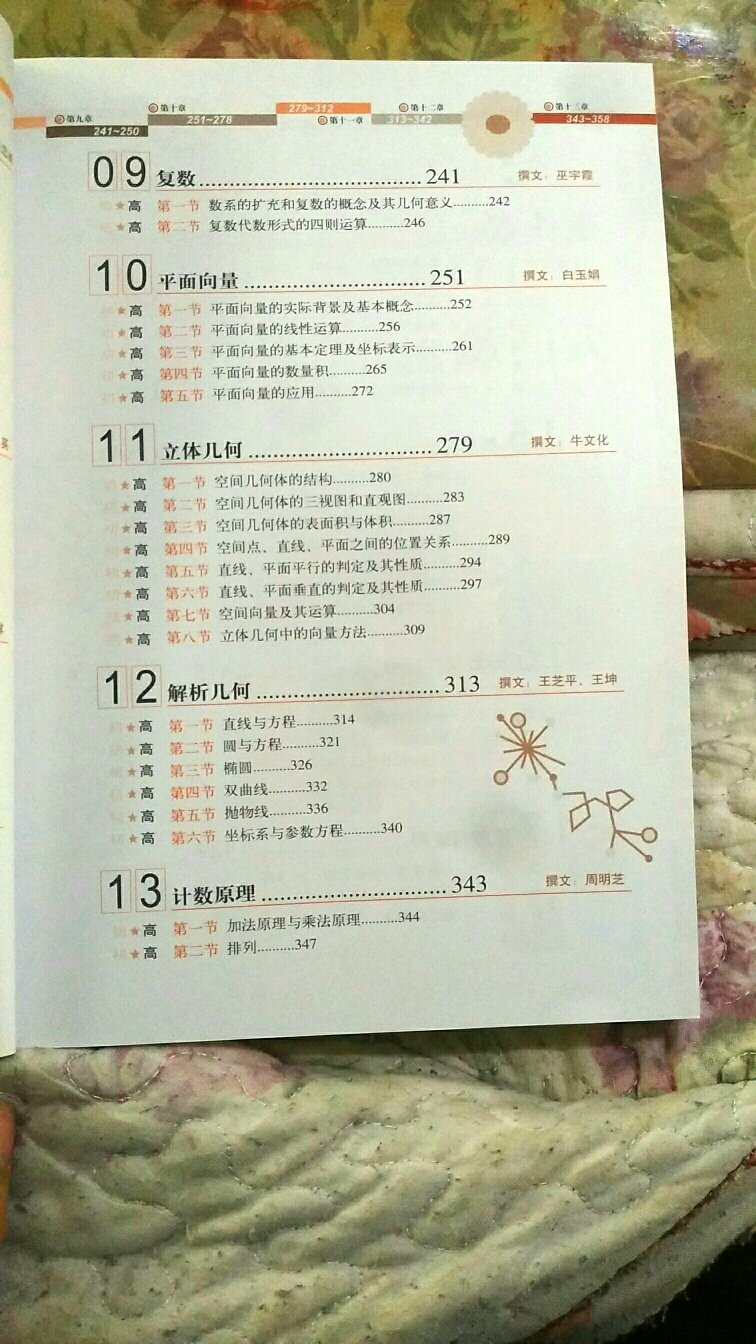 第九章 241~250
第十章 251~278
279~312 第十一章
第十二章 313~342
第十三章 343~358
09 复数……………………………241 撰文：巫宇霞
★高 第一节 数系的扩充和复数的概念及其几何意义..........242
★高 第二节 复数代数形式的四则运算..........246
10 平面向量……………………………251 撰文：白玉娟
★高 第一节 平面向量的实际背景及基本概念..........252
★高 第二节 平面向量的线性运算..........256
★高 第三节 平面向量的基本定理及坐标表示..........261
★高 第四节 平面向量的数量积..........265
★高 第五节 平面向量的应用..........272
11 立体几何……………………………279 撰文：牛文化
★高 第一节 空间几何体的结构..........280
★高 第二节 空间几何体的三视图和直观图..........283
★高 第三节 空间几何体的表面积与体积..........287
★高 第四节 空间点、直线、平面之间的位置关系..........289
★高 第五节 直线、平面平行的判定及其性质..........294
★高 第六节 直线、平面垂直的判定及其性质..........297
★高 第七节 空间向量及其运算..........304
★高 第八节 立体几何中的向量方法..........309
12 解析几何……………………………313 撰文：王芝平、王坤
★高 第一节 直线与方程..........314
★高 第二节 圆与方程..........321
★高 第三节 椭圆..........326
★高 第四节 双曲线..........332
★高 第五节 抛物线..........336
★高 第六节 坐标系与参数方程..........340
13 计数原理……………………………343 撰文：周明芝
★高 第一节 加法原理与乘法原理..........344
★高 第二节 排列..........347